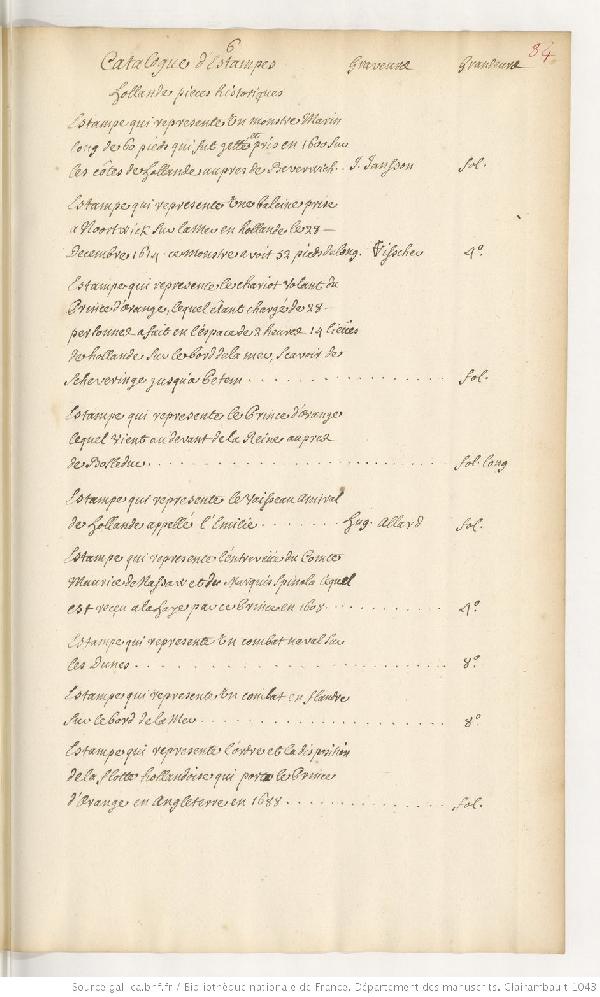 6
84
Catalogue d'Estampes Graveure Grandeure
Hollande pieces historiques
Estampe qui represente Un monstre Marin
long de 60 pieds qui fut getté et pris en 160 sur
les côtes de Hollande aupres de Beverwich. . J. Jansson fol.
Estampe qui represente Une baleine prise
a Noortwick sur la Mer en hollande le 28
Decembre 1614. ce monstre avoit 52 pieds de long. Visscher 4°.
Estampe qui represente le chariot Volant du
Prince d'Orange, lequel étant chargé de 28
personnes a fait en l'espace de 2 heures 14 lieües
de hollande sur le bord de la mer, scavoir de
Scheveringe jusqu'a Petem . . . . . . . . . . . . . . . . fol.
Estampe qui represente le Prince d'Orange
lequel Vient au devant de la Reine aupres
de Bolleduc . . . . . . . . . . . . . . . . . . . . . . . fol. long
Estampe qui represente le Vaisseau Amiral
de Hollande appellé l'Emilie . . . . . . . Hug. Allard fol.
Estampe qui represente l'entreveüe du Comte
Maurice de Nassaw et du Marquis Spinola lequel
est reçeu a la haye par ce Prince en 1608 . . . . . . . . . . . 4°.
Estampe qui represente Un combat naval sur
les Dunes . . . . . . . . . . . . . . . . . . . . . . . . 8°.
Estampe qui represente Un combat en flandre
sur le bord de la Mer . . . . . . . . . . . . . . . . . . . 8°.
Estampe qui represente l'ordre et la disposition
de la flotte hollandoise qui porta le Prince
d'Orange en Angleterre en 1688 . . . . . . . . . . . . . fol.
Source gallica.bnf.fr / Bibliothèque nationale de France. Département des manuscrits. Clairambault 1043